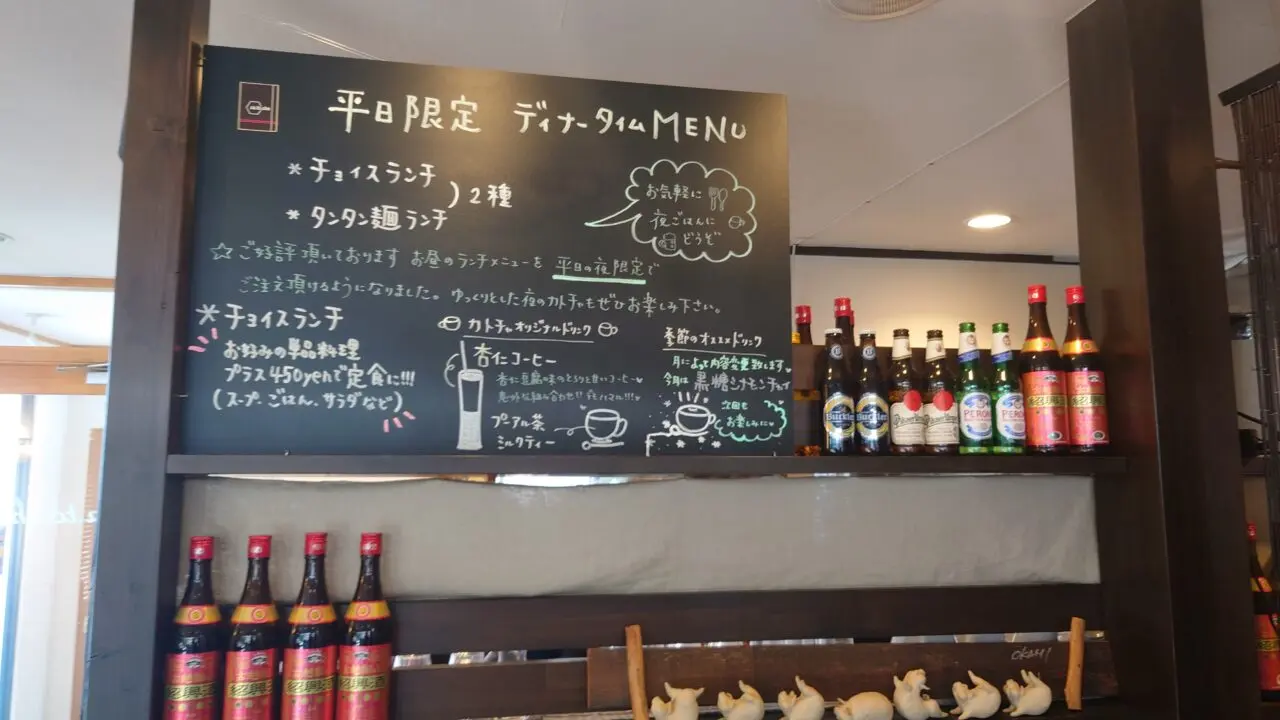 平日限定 ディナータイムMENU
*チョイスランチ
*タンタン麺ランチ
)2種
お気軽に
夜ごはんに
どうぞ
☆ご好評頂いております お昼のランチメニューを 平日の夜限定で
ご注文頂けるようになりました。ゆっくりとした夜のカトチャもぜひお楽しみ下さい。
*チョイスランチ
お好みの単品料理
プラス450yenで定食に!!!
(スープ、ごはん、サラダなど)
カトチャオリジナルドリンク
杏仁コーヒー
杏仁豆腐味のとろりと甘いコーヒー♥
意外な組み合わせ!!
プーアル茶
ミルクティー
季節のオススメドリンク
月によって内容変更致します♥
今月は 黒糖シナモンチャイ
次回も
お楽しみに♥
Buckler
Buckler
PERONI
PERONI
紹興酒
紹興酒
紹興酒
紹興酒
紹興酒
紹興酒
OKAMI